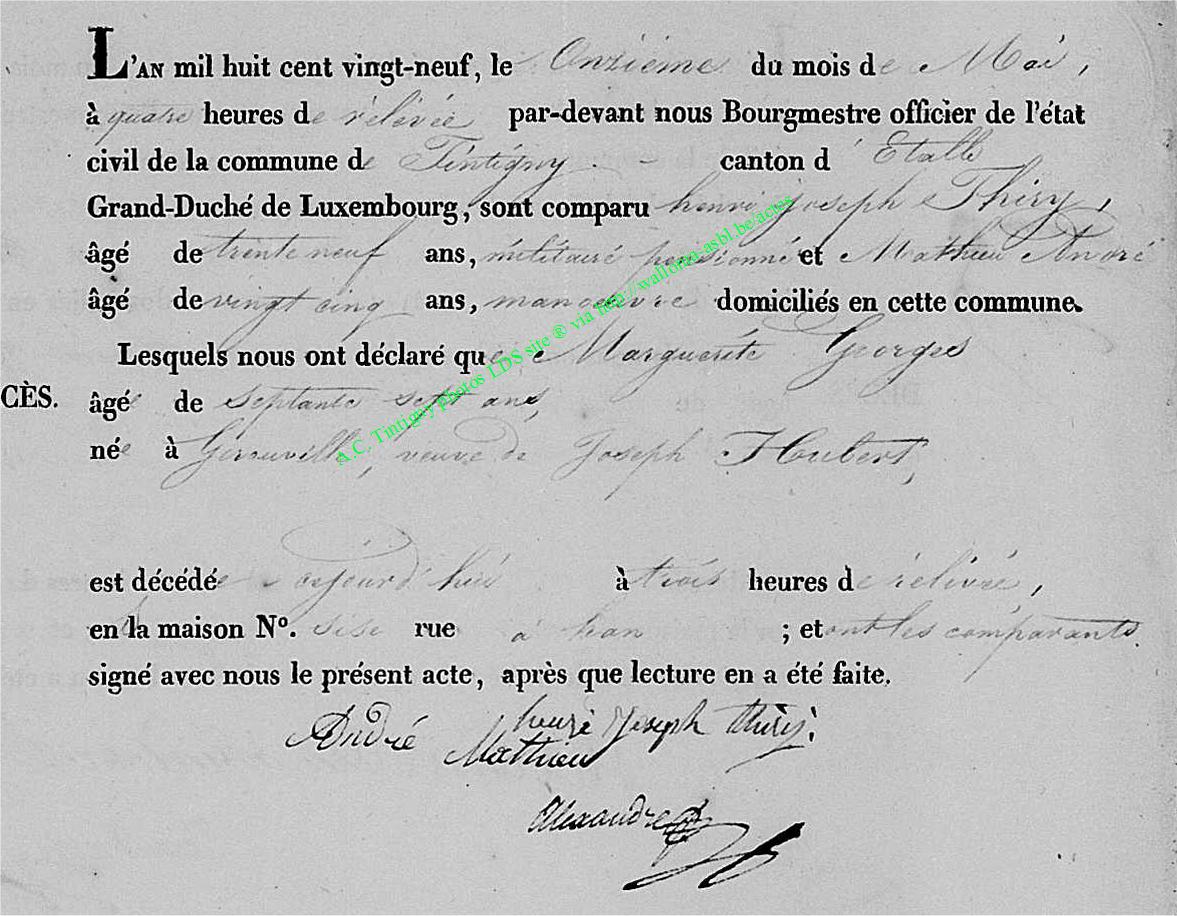 L'AN mil huit cent vingt-neuf, le Onzième du mois de Mai,
à quatre heures de rélévée par-devant nous Bourgmestre officier de l'état
civil de la commune de Tintigny canton d'Etalle
Grand-Duché de Luxembourg, sont comparu henri joseph Thiry,
âgé de trente neuf ans, militaire pensionné et Mathieu André
âgé de vingt cinq ans, manoeuvre domiciliés en cette commune.
Lesquels nous ont déclaré que Marguerite Georges
CÈS. âgée de septante sept ans,
née à Gerouville, veuve de Joseph Hubert,
est décédée aujourd'hui à trois heures de rélévée,
en la maison Nº. sise rue à han ; et ont les comparants
signé avec nous le présent acte, après que lecture en a été faite.
henri Joseph thiry.
André Mathieu
Alexandre
A.C. Tintigny photos LDS site ® via http://wallonia-asbl.be/actes